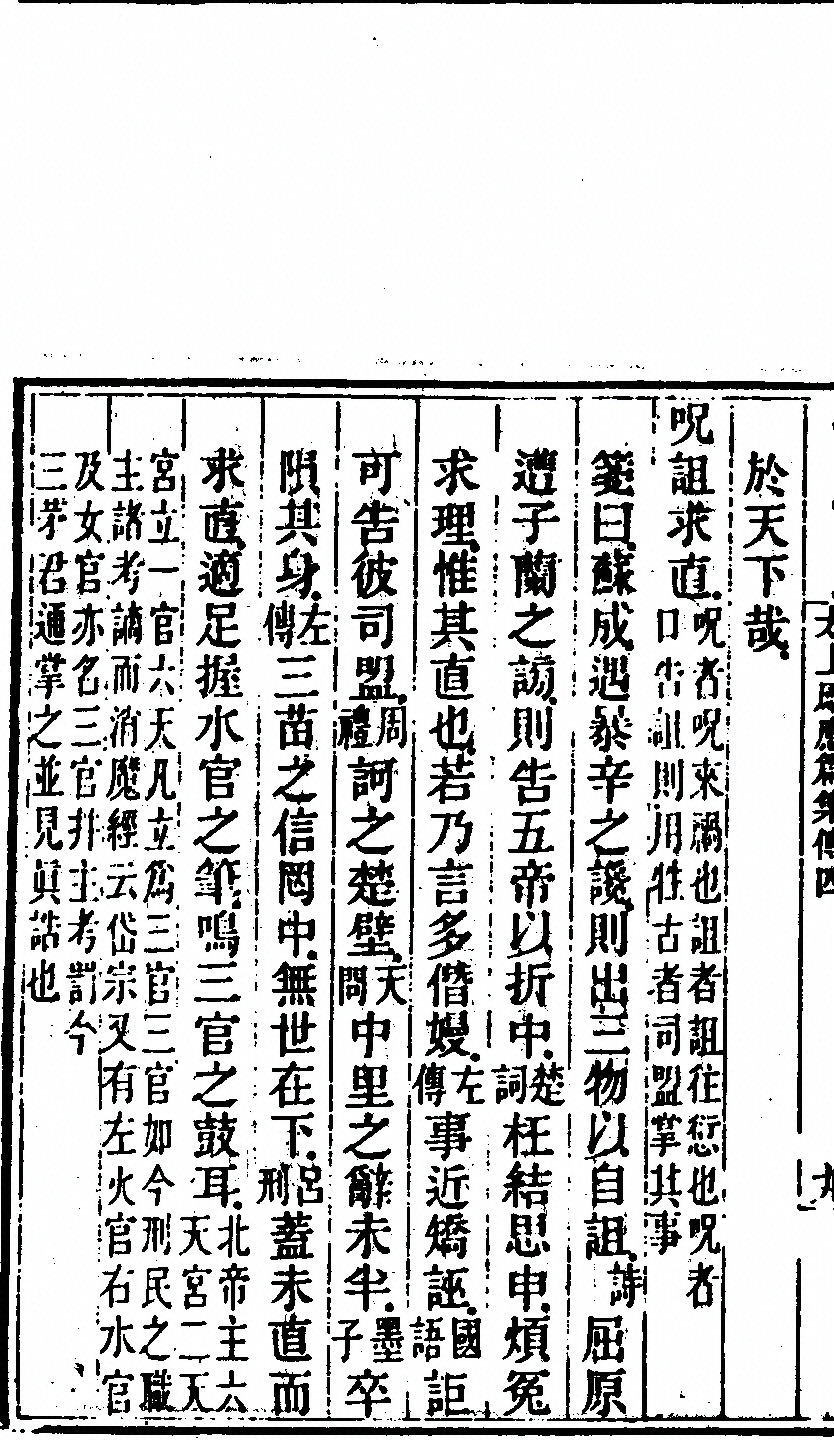 太上感應篇集傳四
於天下哉
呪詛求直呪者呪來禍也詛者詛往愆也呪者口告詛則用牲古者司盟掌其事
箋曰蘇成遇暴辛之讒則出三物以自詛詩屈原
遭子蘭之謗則告五帝以折中楚詞枉結思申煩冤
求理惟其直也若乃言多僭嫚左傳事近矯誣國語詎
可告彼司盟周禮訶之楚壁天問中里之辭未半墨子卒
隕其身左傳三苗之信罔中無世在下呂刑蓋未直而
求直適足握水官之筆鳴三官之鼓耳北帝主六天宮二天
宮立一官六天凡立為三官三官如今刑民之職
主諸考謫而消魔經云岱宗又有左火官右水官
及女官亦名三官并主考罰今
三茅君通掌之並見眞誥也